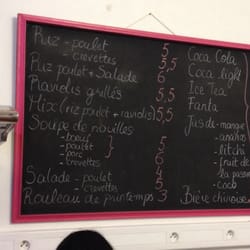 Riz - poulet 5
- crevettes 5,5
Riz poulet + Salade 6
Raviolis grillés 5,5
Mix (riz poulet + raviolis) 5,5
Soupe de nouilles
- boeuf
- poulet } 5
- porc
- crevettes 6
Salade - poulet 4
- crevettes 5
Rouleau de printemps 3
Coca Cola
Coca light
Ice Tea
Fanta
Jus de - mangue
- ananas
- litchi
- fruit de
la passion
- coco
Bière chinoise